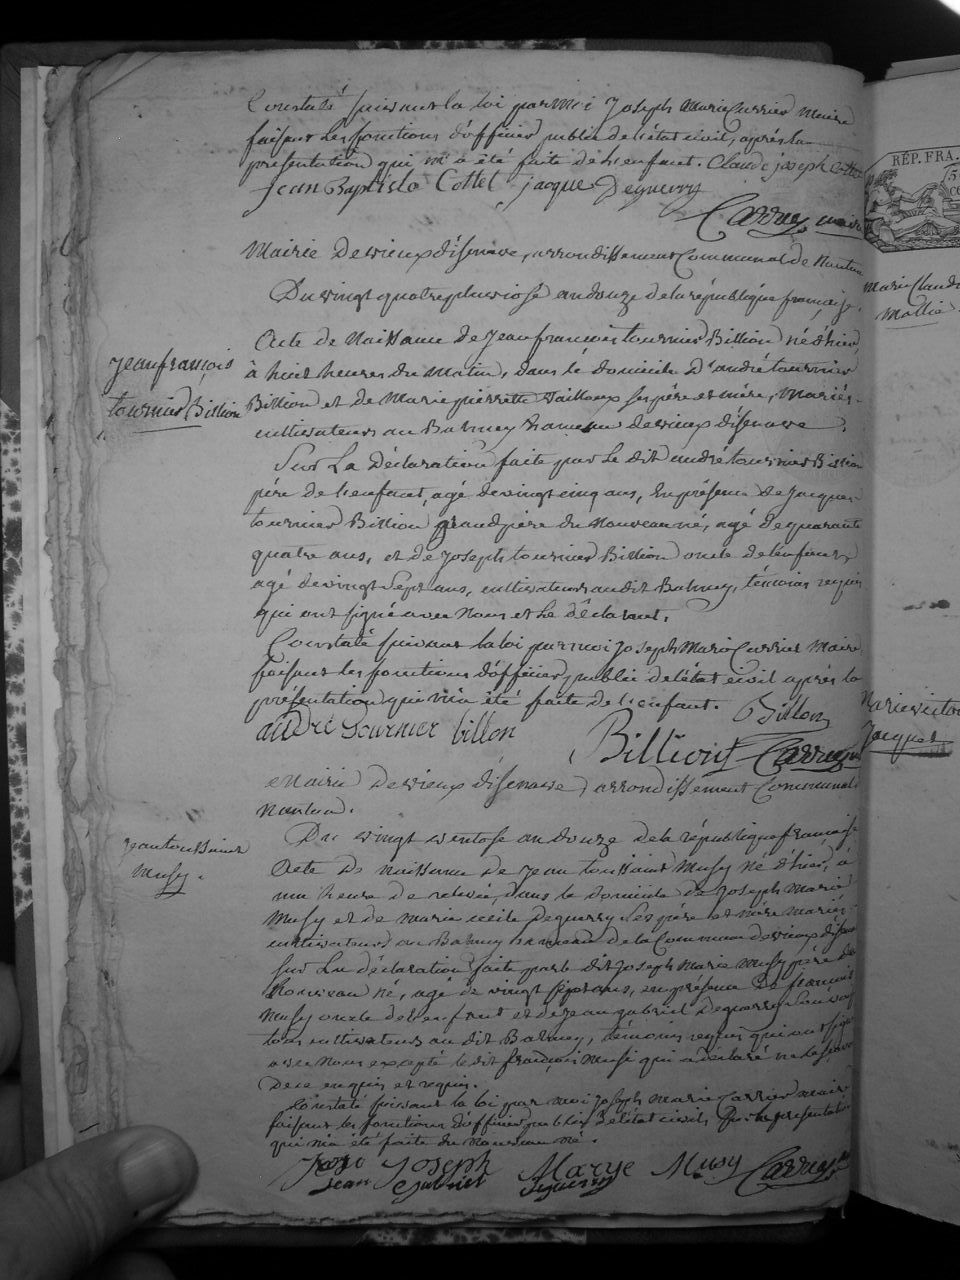 Constaté suivant la loi par moi Joseph Marie Carrier Maire
faisant les fonctions d'officier public de l'état civil, après la
présentation qui m'a été faite de l'enfant. Claude joseph Cottet
Jean Baptiste Cottet jacque Deguerry
Carrier maire
Mairie de vieux d'isenave, arrondissement Communal de Nantua
Du vingt quatre pluviose an douze de la république française.
Jean françois
tournier Billion
Acte de Naissance de Jean francois tournier Billion né d'hier,
à huit heures du matin, dans le domicile d'andré tournier
Billion et de Marie pierrette vailloux ses père et mère, mariés
cultivateurs au Balmey hameau de vieux d'isenave.
Sur La déclaration faite par le dit andré tournier Billion
père de l'enfant, agé de vingt cinq ans, En présence de Jacques
tournier Billion grand père du nouveau né, agé de quarante
quatre ans, et de Joseph tournier Billion oncle de l'enfant,
agé de vingt sept ans, cultivateurs audit Balmey, témoins requis
qui ont signé avec Nous et le déclarant.
Constaté suivant la loi par moi Joseph Marie Carrier Maire
faisant les fonctions d'officier public de l'état civil après la
présentation qui m'a été faite de l'enfant. Billon
andré tournier billon
Billiont Carrier
Mairie de vieux d'isenave, arrondissement Communal
Nantua.
Du vingt ventose an douze de la république française
jean toussaint
Musy.
Acte de naissance de Jean toussaint Musy né d'hier, à
une heure de relevée, dans le domicile de Joseph Marie
Musy et de marie cecile Deguerry ses père et mère mariés
cultivateurs au Balmey hameau de la Commune de vieux d'isenave
sur La déclaration faite par le dit Joseph Marie Musy père du
Nouveau né, agé de vingt sept ans, en présence de francois
Musy oncle de l'enfant et de Jean gabriel Deguerry
tous cultivateurs au dit Balmey, témoins requis qui ont signé
avec nous excepté le dit françois Musi qui a déclaré ne le savoir
De ce enquis et requis.
Constaté suivant la loi par moi Joseph Marie Carrier maire
faisant les fonctions d'officier public de l'état civil, sur la présentation
qui m'a été faite du nouveau né.
Joseph Marye Musy Carrier
Jean Gabriel Deguerry
RÉP. FRA.
Marie Claud
Mollie
Marie victoi
Jacquet